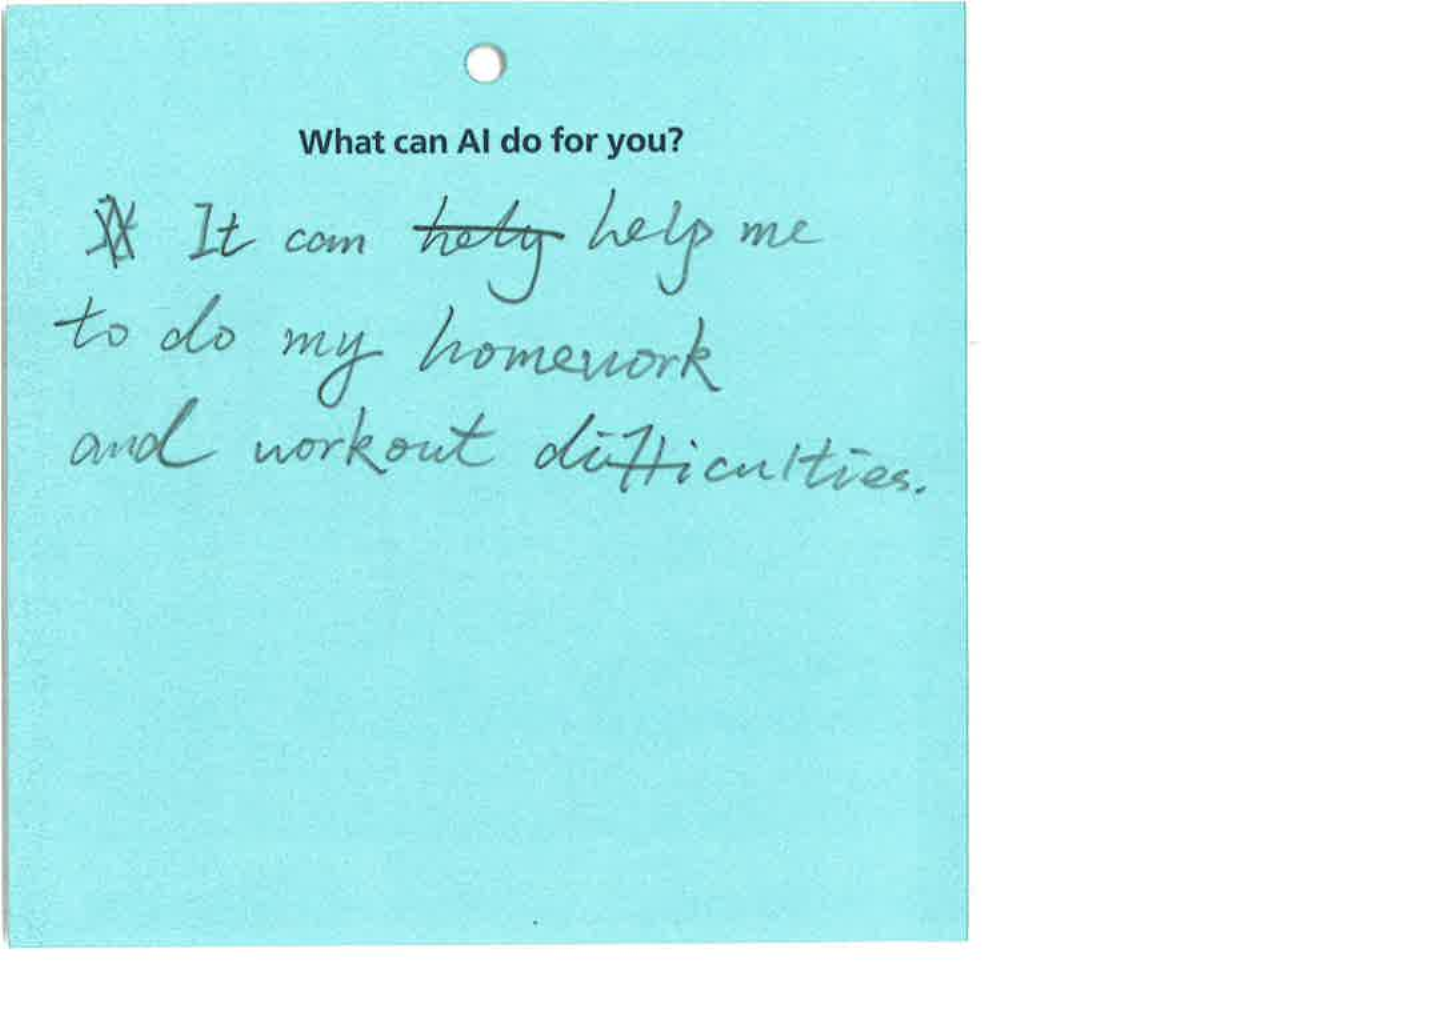 What can AI do for you?
It can hely help me
to do my homework
and workout difficulties.